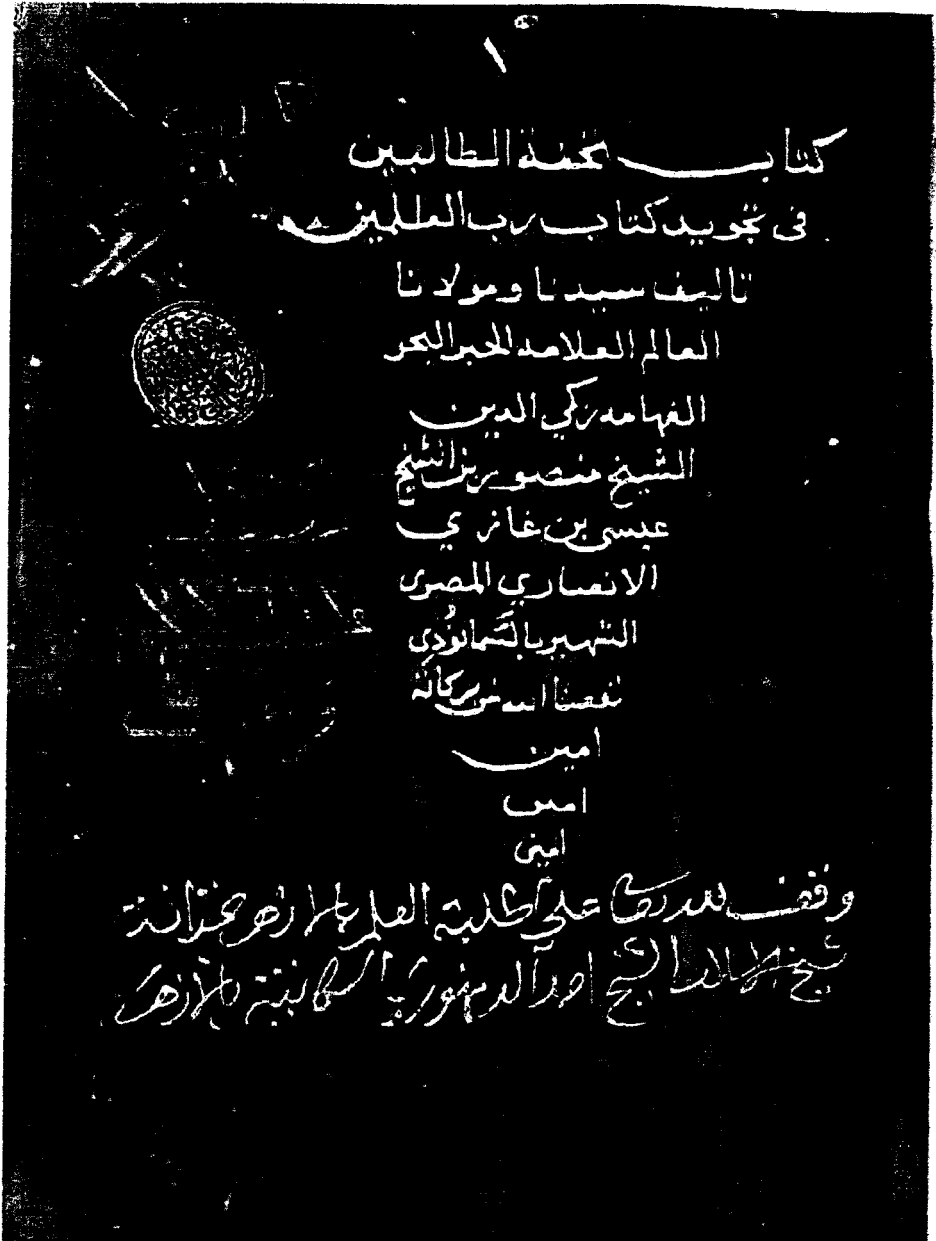 ١
كتاب تحفة الطالبين
في تجويد كتاب رب العلمين
تاليف سيدنا ومولانا
العالم العلامه الحبر البحر
الفهامه زكي الدين
الشيخ منصور بن الشيخ
عيسى بن غازي
الانصاري المصرى
الشهير بالسَّمانوُدِى
نفعنا الله من بركاته
امين
امين
امين
وقف لله تعالى على طلبة العلم بالازهر بخزانة
شيخ الشيخ احمد الدمنهوري الكائنة بالازهر